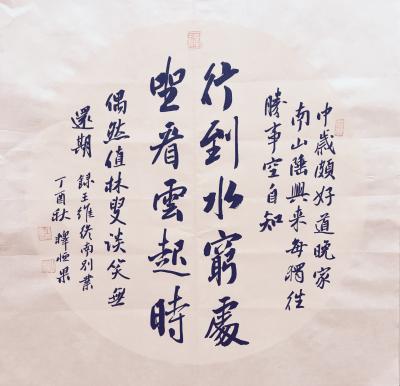 中歲頗好道晚家
南山陲興来每獨往
勝事空自知
行到水窮處
坐看雲起時
偶然值林叟谈笑無
還期
録王維终南别業
丁酉秋